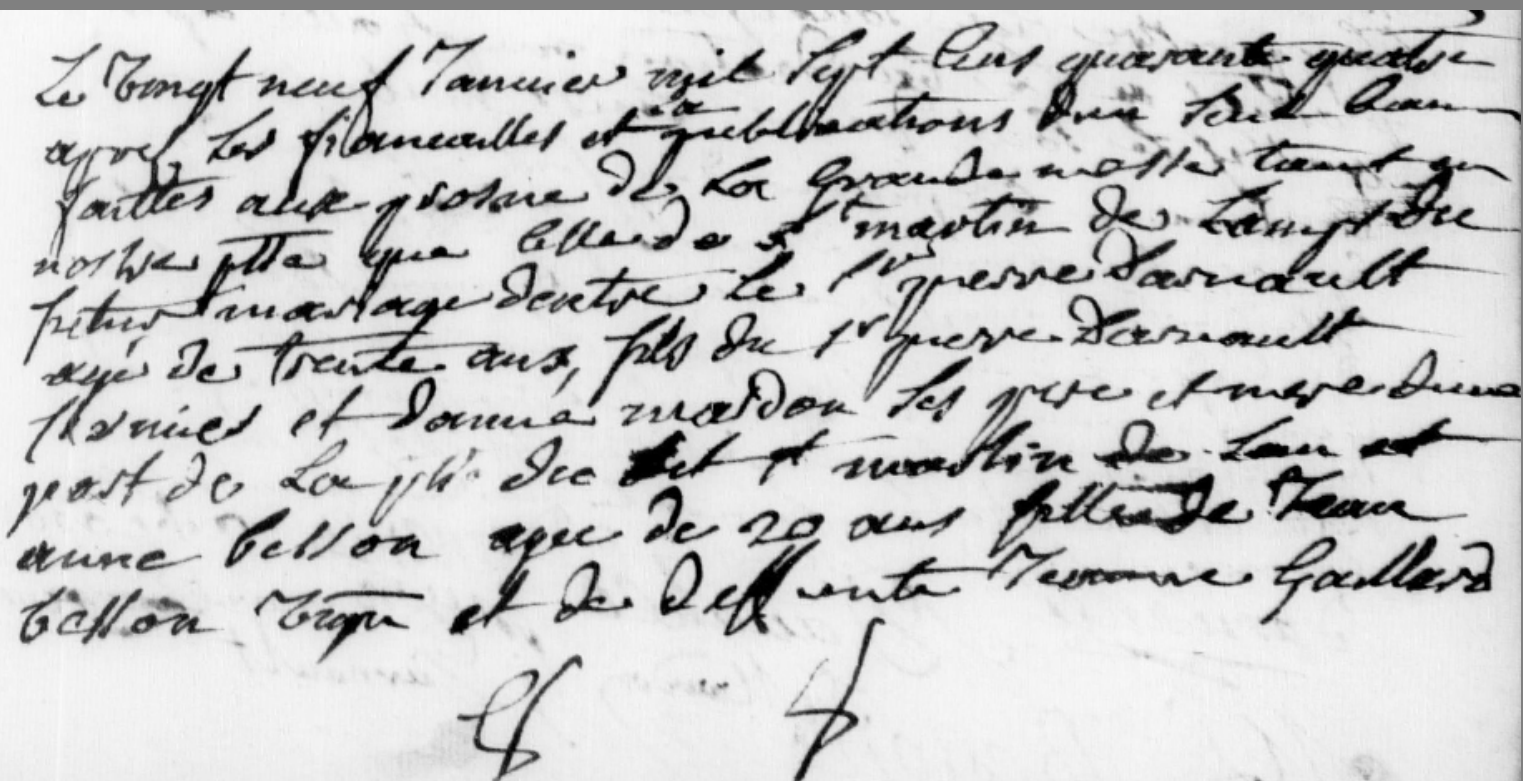 Le vingt neuf Janvier mil sept cens quarante quatre
apres les fiancailles et la publications dun seul ban
faittes aux prosne de La grande messe tant en
nostre psse que celle de st martin de Lamps du
futur mariage dentre le sr pierre Darnault
agé de trente ans, fils du sr pierre Darnault
fermier et danne mardon ses pere et mere dune
part de La psse du dit st martin de Lan et
anne besson agee de 20 ans fille de Jean
besson vign et de deffunte Jeanne Gaillard